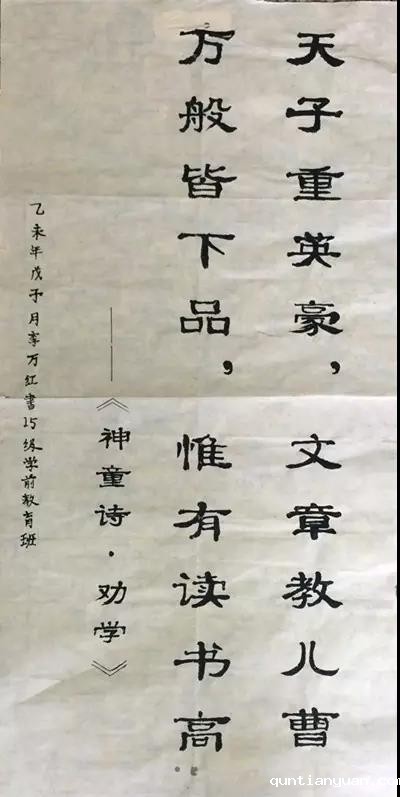 天子重英豪，文章教儿曹
万般皆下品，惟有读书高
——《神童诗·劝学》
乙未年戊子月李万红書15级学前教育班
quntianyuan.com